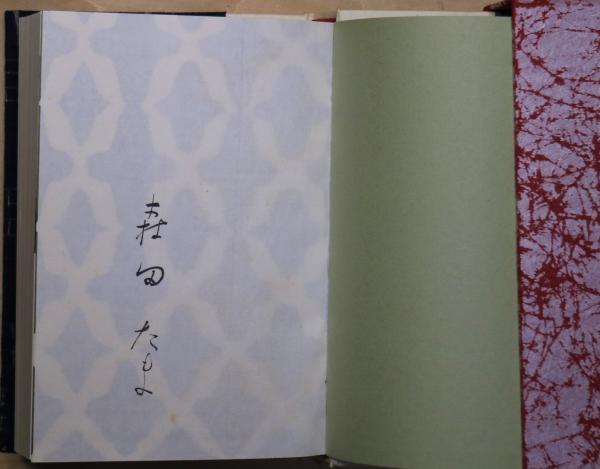 森田たま